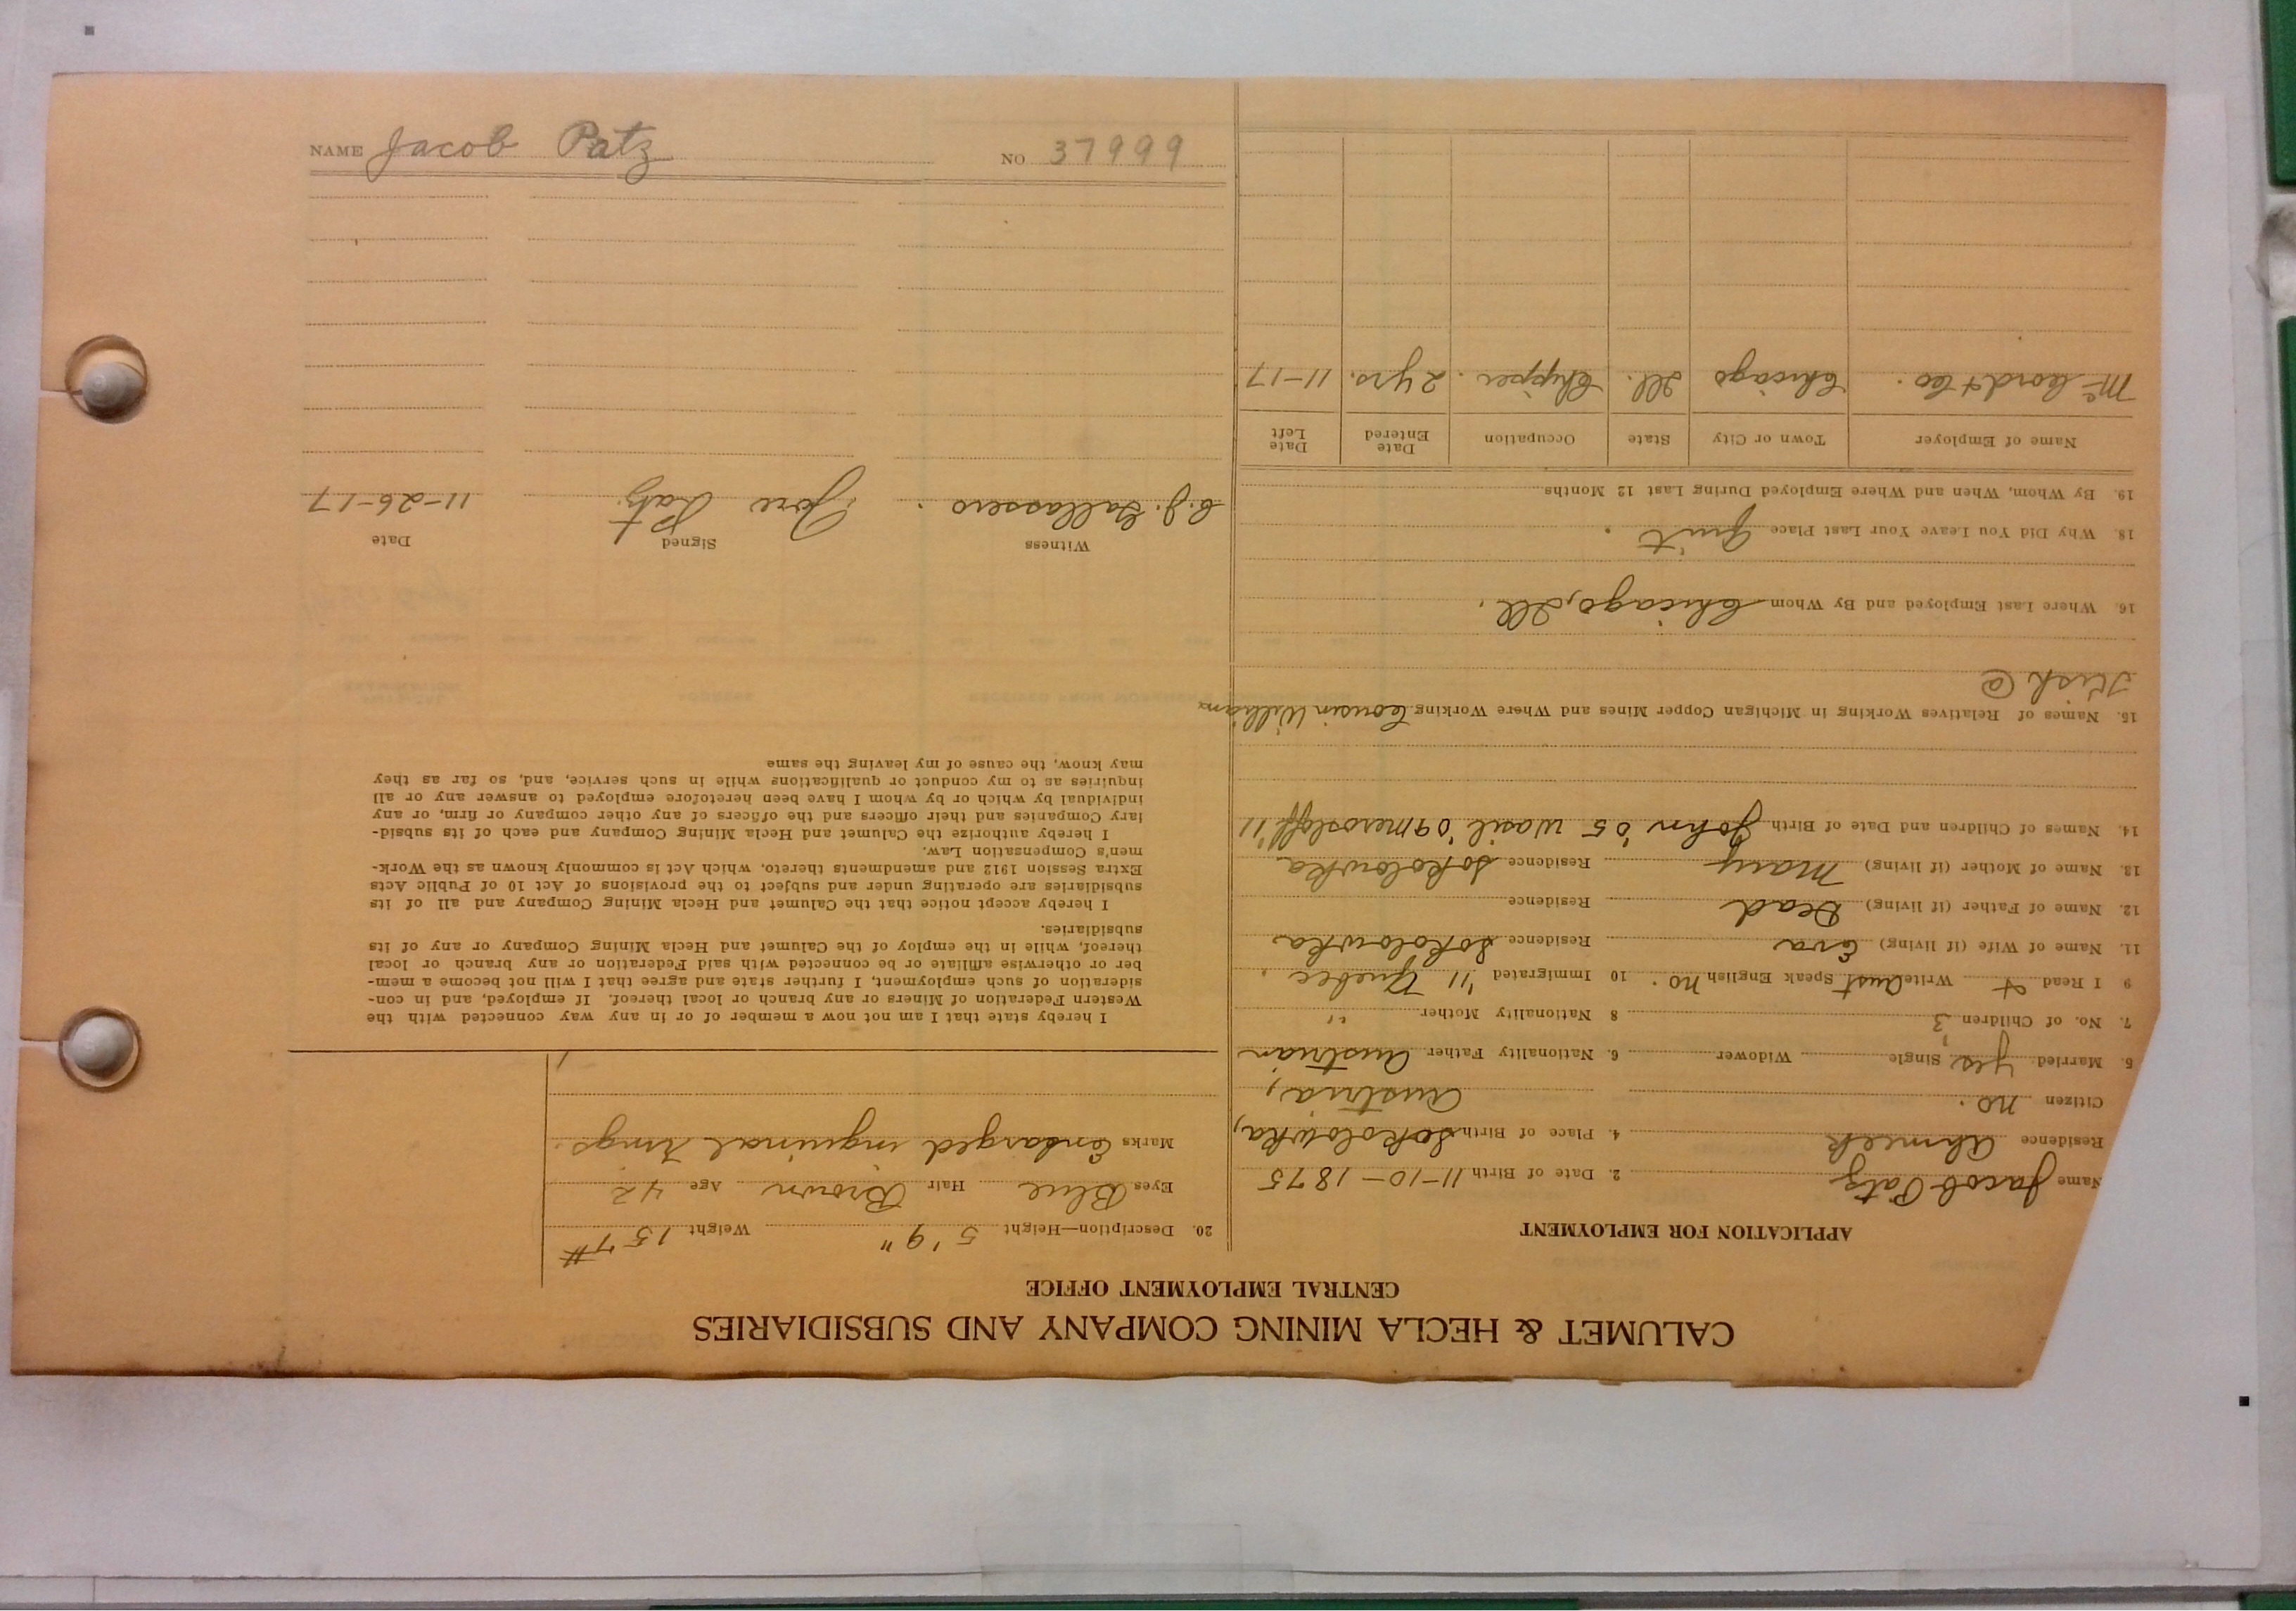 CALUMET & HECLA MINING COMPANY AND SUBSIDIARIES
CENTRAL EMPLOYMENT OFFICE
APPLICATION FOR EMPLOYMENT
Name Jacob Patz 2. Date of Birth 11-10-1875
Residence Ahmeek 4. Place of Birth Sokolowka,
Citizen no. Austria,
5. Married yes, Single Widower 6. Nationality Father Austrian
7. No. of Children 3 8 Nationality Mother "
9 I Read + Write Aust Speak English no. 10 Immigrated '11 Quebec.
11. Name of Wife (if living) Eva Residence Sokolowka
12. Name of Father (if living) Dead Residence
13. Name of Mother (if living) Mary Residence Sokolowka
14. Names of Children and Date of Birth John '05 Wasil '09 Merosloff '11
15. Names of Relatives Working in Michigan Copper Mines and Where Working Cousin William
Kish @
16. Where Last Employed and By Whom Chicago, Ill.
18. Why Did You Leave Your Last Place Quit.
19. By Whom, When and Where Employed During Last 12 Months
Name of Employer Town or City State Occupation Date Entered Date Left
McCord & Co. Chicago Ill. Chipper. 2 yrs. 11-17
20. Description—Height 5' 9" Weight 157#
Eyes Blue Hair Brown Age 42
Marks Enlarged inguinal rings.
I hereby state that I am not now a member of or in any way connected with the
Western Federation of Miners or any branch or local thereof. If employed, and in con-
sideration of such employment, I further state and agree that I will not become a mem-
ber or otherwise affiliate or be connected with said Federation or any branch or local
thereof, while in the employ of the Calumet and Hecla Mining Company or any of its
subsidiaries.
I hereby accept notice that the Calumet and Hecla Mining Company and all of its
subsidiaries are operating under and subject to the provisions of Act 10 of Public Acts
Extra Session 1912 and amendments thereto, which Act is commonly known as the Work-
men's Compensation Law.
I hereby authorize the Calumet and Hecla Mining Company and each of its subsid-
iary Companies and their officers and the officers of any other company or firm, or any
individual by which or by whom I have been heretofore employed to answer any or all
inquiries as to my conduct or qualifications while in such service, and, so far as they
may know, the cause of my leaving the same
Witness Signed Date
C.J. Gallassero. 11-26-17
NAME Jacob Patz NO 37999